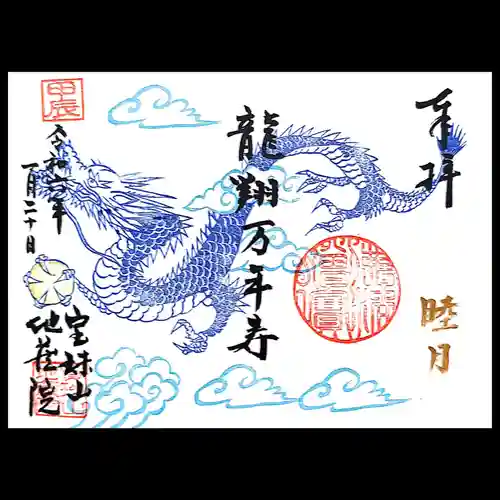 奉拝
睦月
龍翔万年寿
甲辰
令和六年
一月二十日
宝珠山
地蔵院